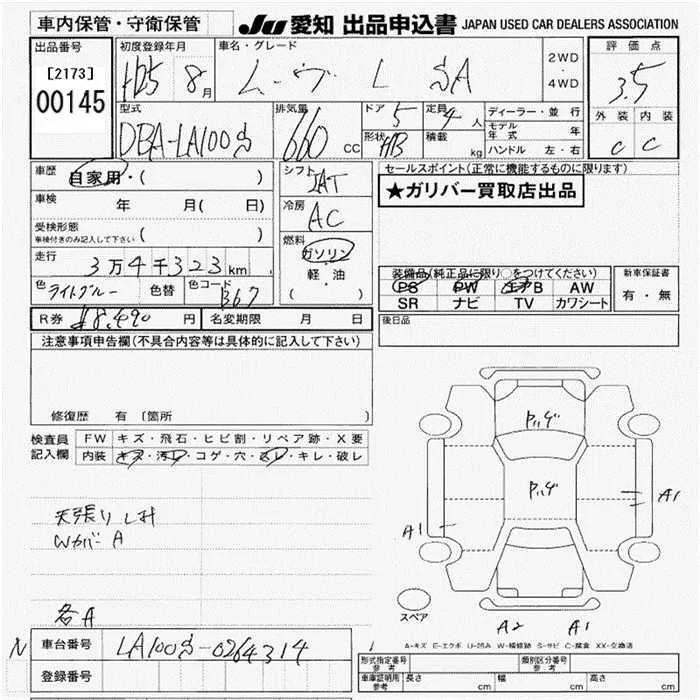 車内保管・守衛保管
JU 愛知 出品申込書 JAPAN USED CAR DEALERS ASSOCIATION
出品番号
[2173]
00145
初度登録年月
H25 8月
車名・グレード
ムーヴ L SA
2WD・4WD
評価点
3.5
外装 内装
C C
型式
DBA-LA100S
排気量
660 CC
ドア 5
形状 HB
定員 4人
積載 kg
ディーラー・並行
モデル年式 年
ハンドル 左・右
車歴 自家用・( )
車検 年 月( 日)
受検形態 ( )
車検付きのみ記入して下さい
走行 3万4千323km
色 ライトブルー 色替 色コード B67
シフト
IAT
冷房
AC
燃料
ガソリン
軽・油
( ・ )
セールスポイント(正常に機能するものに限ります)
★ガリバー買取店出品
装備品(純正品に限り○をつけてください)
PS PW エアB AW
SR ナビ TV カワシート
新車保証書
有・無
R券 ¥8,490円 名変期限 月 日
後日品
注意事項申告欄(不具合内容等は具体的に記入して下さい)
修復歴 有〔箇所
検査員記入欄
FW キズ・飛石・ヒビ割・リペア跡・X要
内装 キズ・汚レ・コゲ・穴・スレ・キレ・破レ
天張りしみ
WカバーA
各A
Pハゲ
Pハゲ
A1
A1
スペア
A2 A1
A-キズ E-エクボ U-凹み W-補修跡 S-サビ C-腐食 XX-交換済
N 車台番号 LA100S-0264314
登録番号
形式指定番号 参考
類別区分番号 参考
車庫証明用 参考 長さ cm 幅 cm 高さ cm